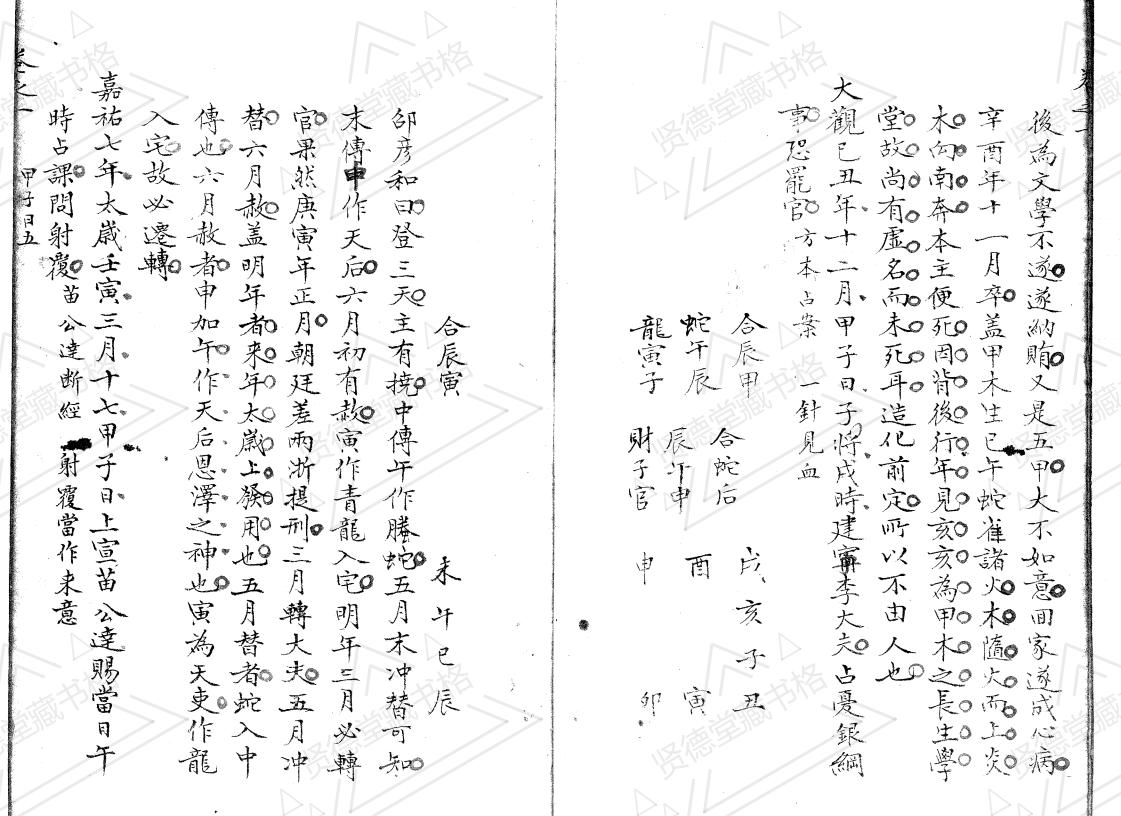 卷之一
後為文學不遂遂納賄又是五甲大不如意回家遂成心病
辛酉年十一月卒蓋甲木生巳午蛇雀諸火木隨火而上炎
木向南奔本主便死因背後行年見亥亥為甲木之長生學
堂故尚有虛名而未死耳造化前定所以不由人也
大觀己丑年十二月甲子日子將戌時建寧李大夫占憂銀綱
事恐罷官方本占案 一針見血
合辰甲 合蛇后 戌亥子丑
蛇午辰 辰午申 酉 寅
龍寅子 財子官 申 卯
合辰寅 未午巳辰
邵彥和曰登三天主有撓中傳午作騰蛇五月末冲替可知
末傳申作天后六月初有赦寅作青龍入宅明年三月必轉
官果然庚寅年正月朝廷差兩浙提刑三月轉大夫五月冲
替六月赦蓋明年者來年太歲上發用也五月替者蛇入中
傳也六月赦者申加午作天后恩澤之神也寅為天吏作龍
入宅故必遷轉
嘉祐七年太歲壬寅三月十七甲子日上宣苗公達賜當日午
時占課問射覆苗公達斷經 射覆當作來意
卷之一 甲子日五
贤德堂藏书格